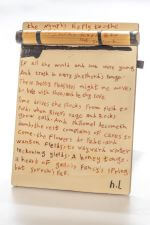 the Nymph's Reply to the
If all the world and love were young
And truth in every shepherd's tongue
These pretty pleasures might me move
to live with thee and be thy love.
Time drives the flocks from field to
fold when Rivers rage and Rocks
grow cold. And Philomel becometh
dumb, the rest complains of cares to
come. The flowers do fade, and
wanton fields; to wayward winter
reckoning yields; a honey tongue,
a heart of gall, is fancy's spring
but sorrow's fall.
h.L